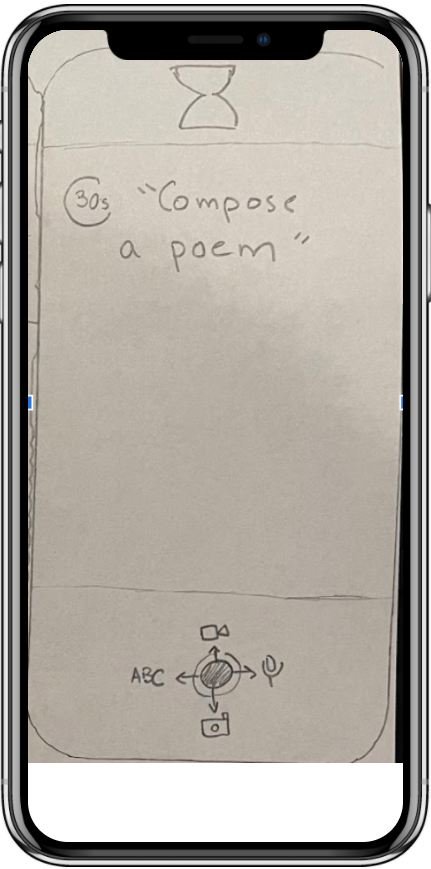 30s "Compose
a poem"
ABC